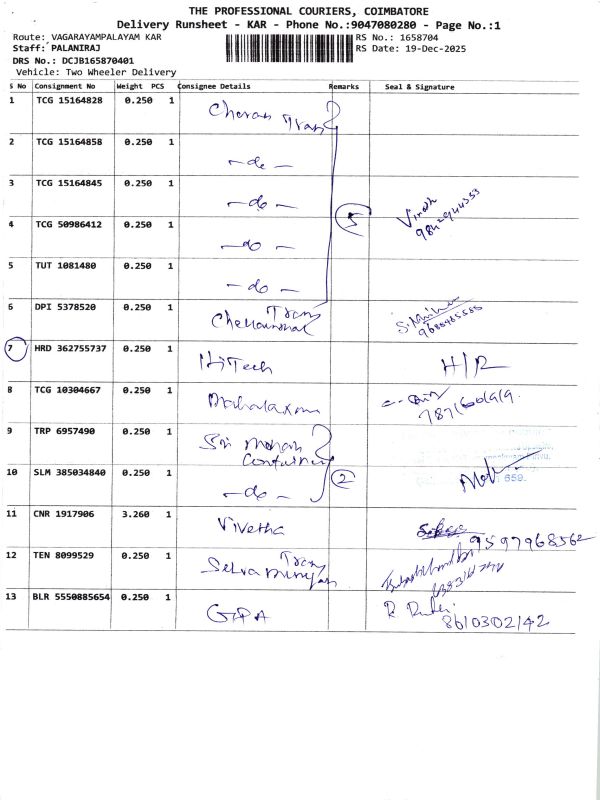 THE PROFESSIONAL COURIERS, COIMBATORE
Delivery Runsheet - KAR - Phone No.:9047080280 - Page No.:1
Route: VAGARAYAMPALAYAM KAR RS No.: 1658704
Staff: PALANIRAJ RS Date: 19-Dec-2025
DRS No.: DCJB165870401
Vehicle: Two Wheeler Delivery
S No Consignment No Weight PCS Consignee Details Remarks Seal & Signature
1 TCG 15164828 0.250 1 Cheran Trans
2 TCG 15164858 0.250 1 - do -
3 TCG 15164845 0.250 1 - do -
4 TCG 50986412 0.250 1 - do - 5 Vinoth
5 TUT 1081480 0.250 1 - do -
6 DPI 5378520 0.250 1 Trans
7 HRD 362755737 0.250 1 HiTech H/R
8 TCG 10304667 0.250 1 Mahalaxmi
9 TRP 6957490 0.250 1 Sri Mohan Container
10 SLM 385034840 0.250 1 - do - 2 659.
11 CNR 1917906 3.260 1 Vivetha 9597968562
12 TEN 8099529 0.250 1 Trans
13 BLR 5550885654 0.250 1 GPA 8610302142